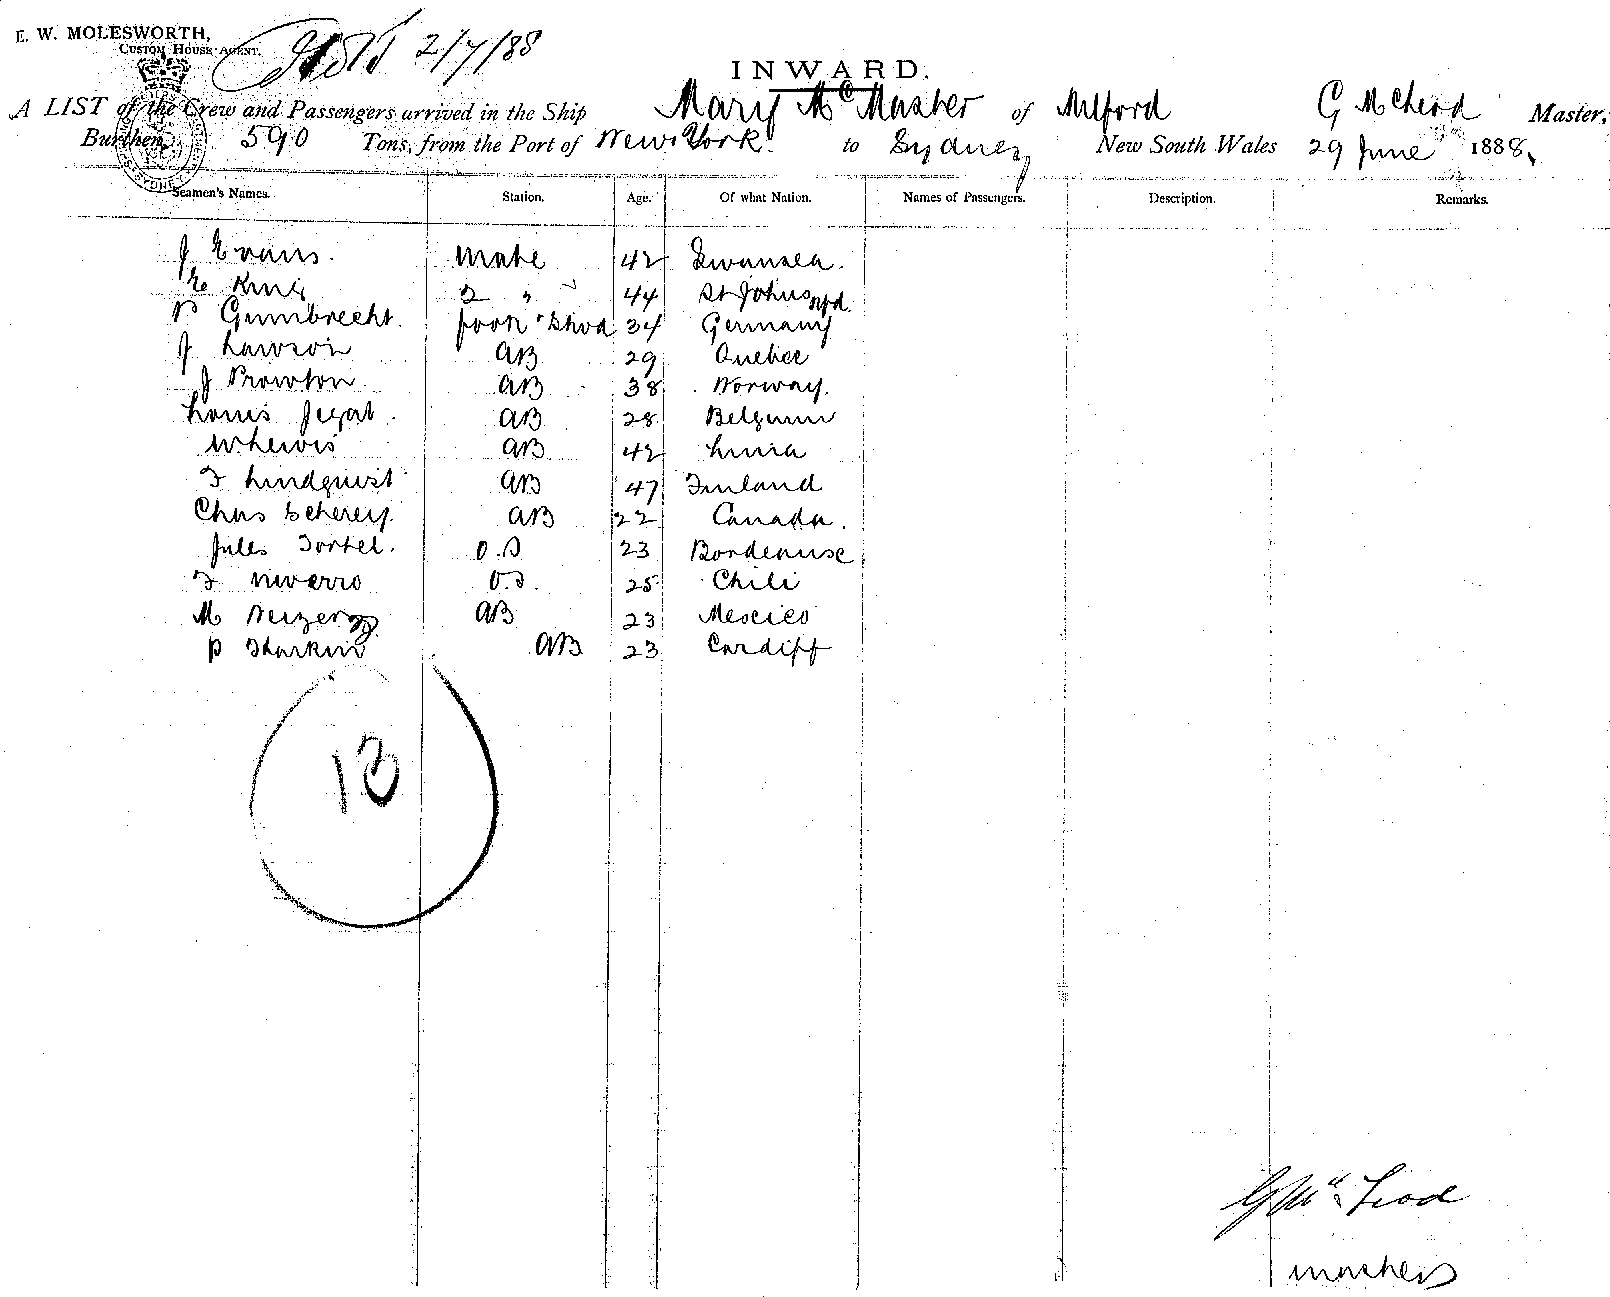 E. W. MOLESWORTH,
CUSTOM HOUSE AGENT.
2/7/88
INWARD.
A LIST of the Crew and Passengers arrived in the Ship Mary McMaster of Milford G McLeod Master,
Burthen, 590 Tons, from the Port of New York to Sydney New South Wales 29 June 1888,
Seamen's Names. Station. Age. Of what Nation. Names of Passengers. Description. Remarks.
J Evans. Mate 42 Swansea.
E King 2 " 44 St Johns Nfd.
P Gumbrecht. Cook & Stwd 34 Germany
J Lawson AB 29 Quebec
J Browton AB 38 Norway.
Louis Jegat. AB 28 Belgium
W Lewis AB 42
F Lindquist AB 47 Finland
Chas Scherey. AB 22 Canada.
Jules Tortel. O.S 23 Bordeause
F Niverro O.S. 25 Chili
M AB 23 Mexico
P Sharkin AB 23 Cardiff
13
G Mc Leod
Master